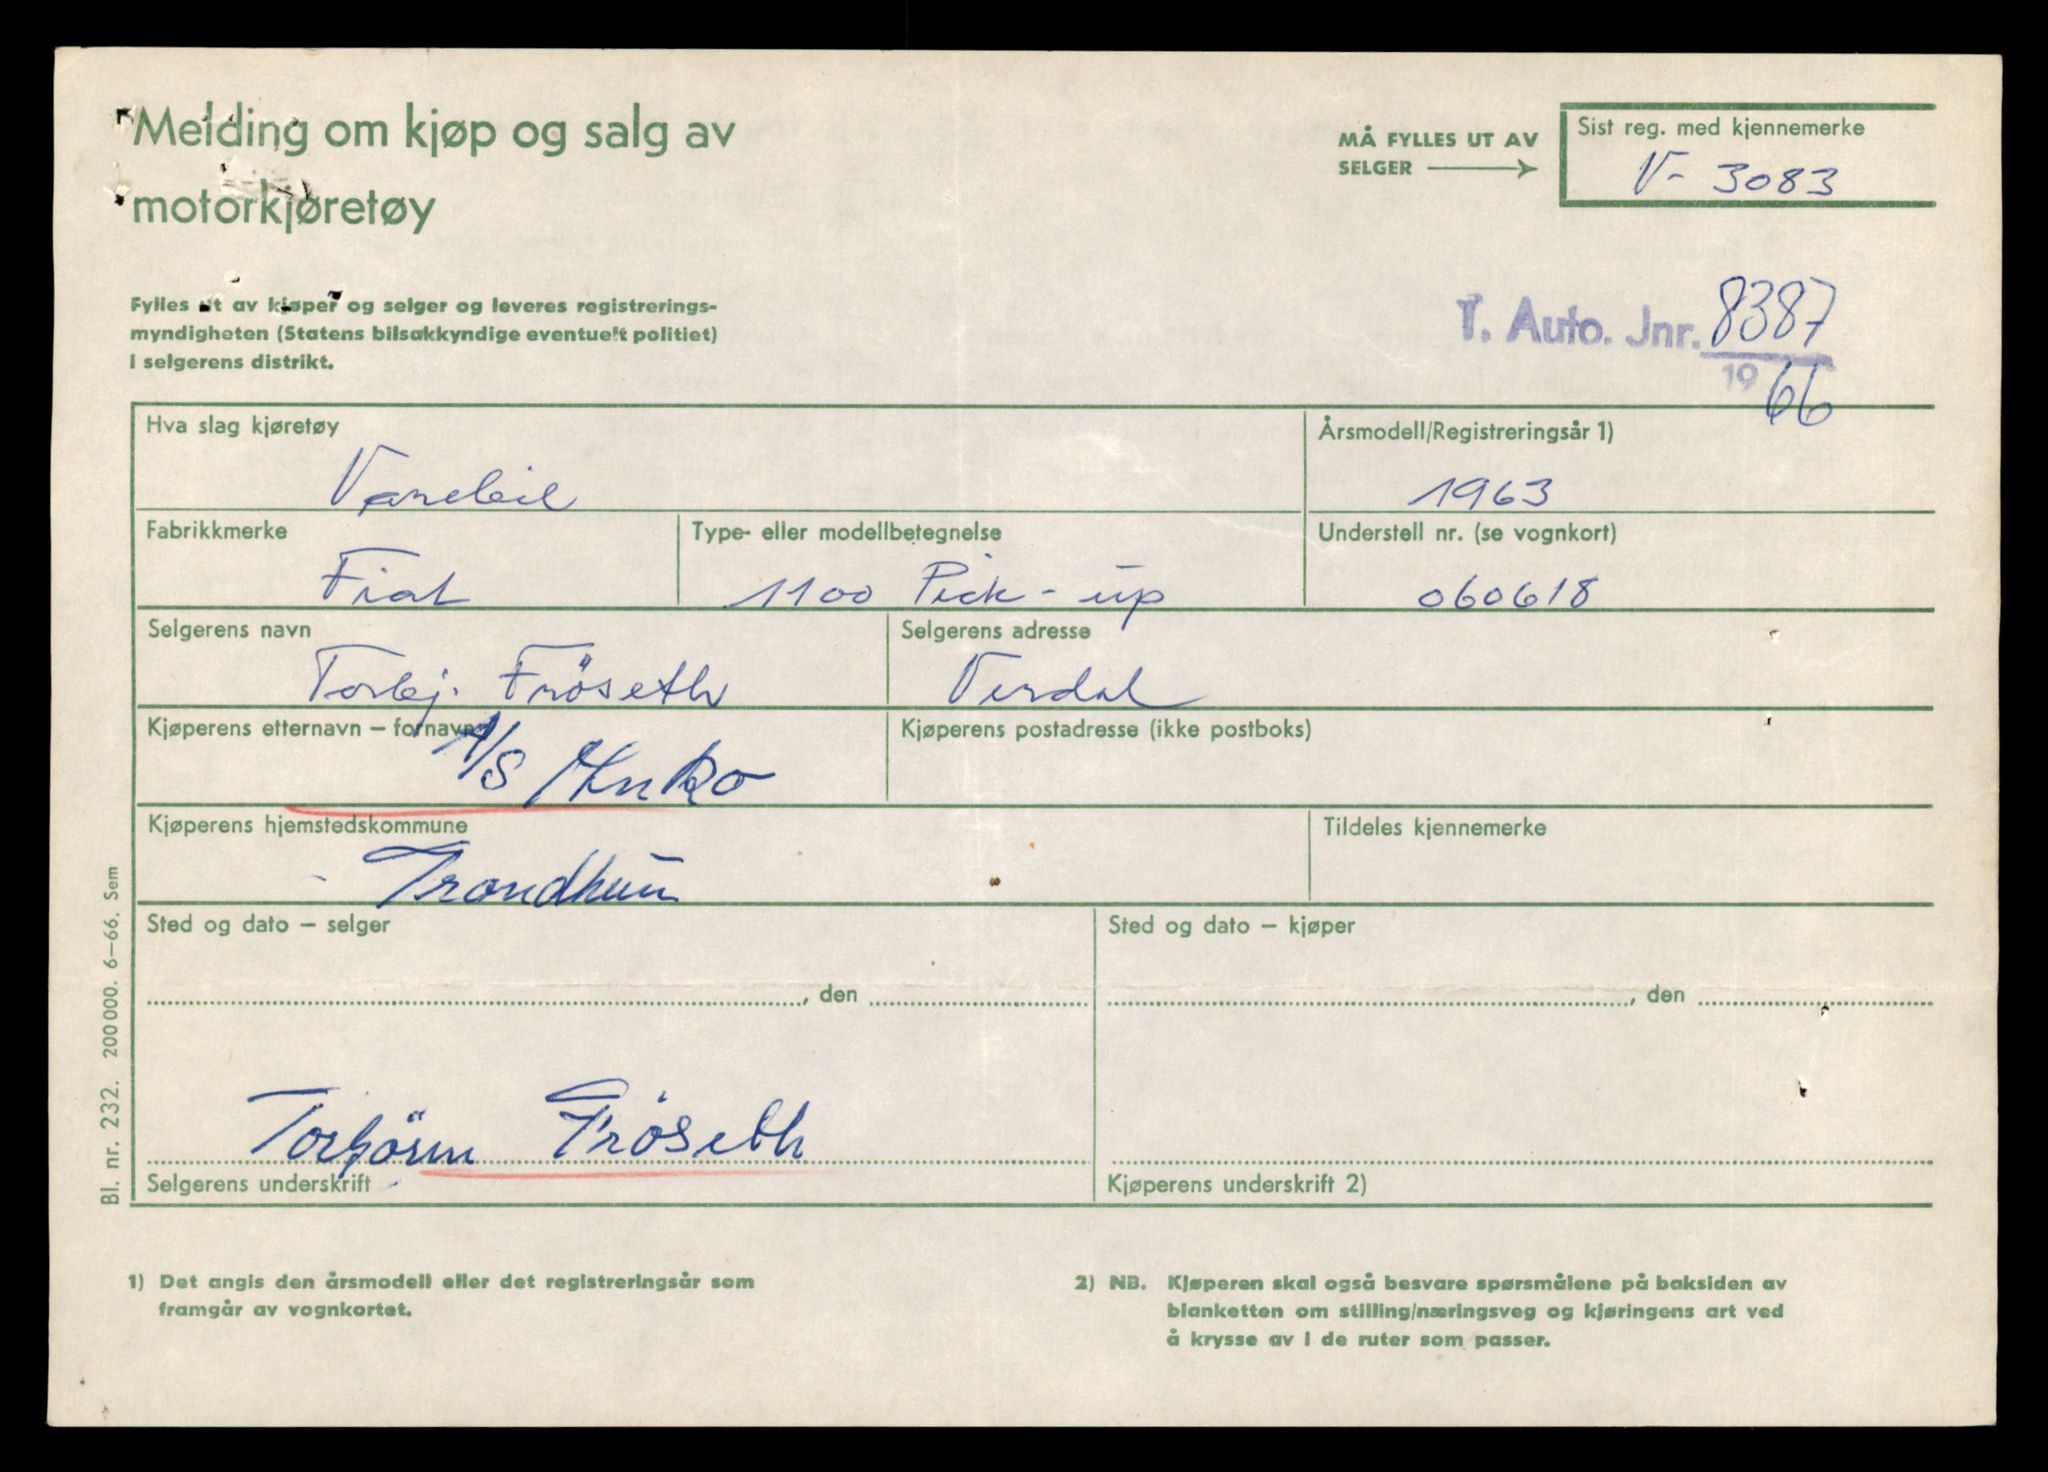 Melding om kjøp og salg av
motorkjøretøy
MÅ FYLLES UT AV
SELGER
Sist reg. med kjennemerke
V- 3083
Fylles ut av kjøper og selger og leveres registrerings-
myndigheten (Statens bilsakkyndige eventuelt politiet)
i selgerens distrikt.
T. Auto. Jnr. 8387
1966
Hva slag kjøretøy
Varebil
Årsmodell/Registreringsår 1)
1963
Fabrikkmerke
Fiat
Type- eller modellbetegnelse
1100 Pick-up
Understell nr. (se vognkort)
060618
Selgerens navn
Torbj. Fröseth
Selgerens adresse
Verdal
Kjøperens etternavn – fornavn
A/S
Kjøperens postadresse (ikke postboks)
Kjøperens hjemstedskommune
Trondheim
Tildeles kjennemerke
Sted og dato – selger
, den
Sted og dato – kjøper
, den
Torbjörn Fröseth
Selgerens underskrift
Kjøperens underskrift 2)
Bl. nr. 232. 200 000. 6–66. Sem
1) Det angis den årsmodell eller det registreringsår som
framgår av vognkortet.
2) NB. Kjøperen skal også besvare spørsmålene på baksiden av
blanketten om stilling/næringsveg og kjøringens art ved
å krysse av i de ruter som passer.